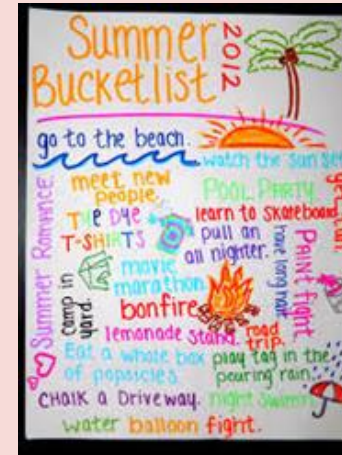 Summer
Bucketlist
2012
go to the beach.
watch the sun set
meet new
people
POOL PARTY
Summer Romance
TIE DYE
T-SHIRTS
learn to skateboard
pull an
all nighter.
have long hair
PAINT fight
camp in
yard.
movie
marathon
bonfire
lemonade stand.
road
trip.
Eat a whole box
of popsicles.
play tag in the
pouring rain.
CHALK A DRIVEWAY.
night swim
water balloon fight.